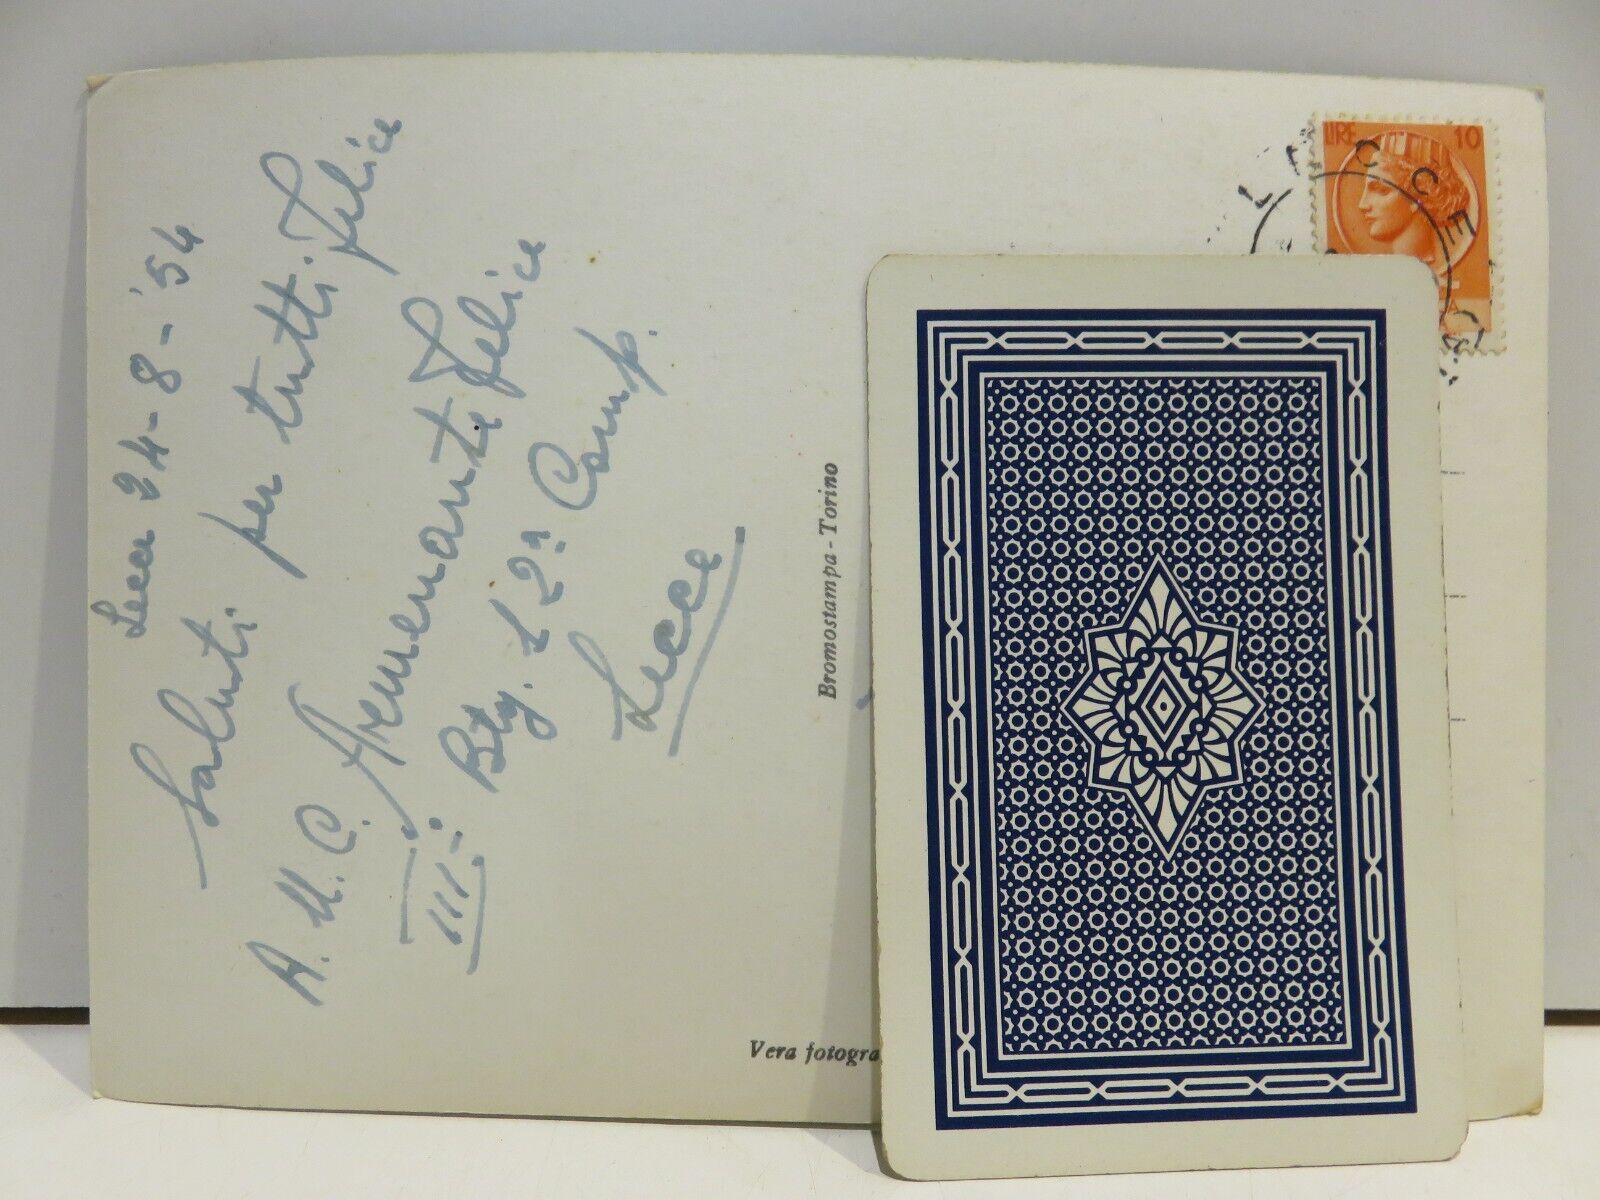 Lecce 24-8-'54
Saluti per tutti. Felice
A.M.C. Felice
III: Btg. 12ª Comp.
Lecce
Bromostampa - Torino
Vera fotogra
LIRE 10
LECCE